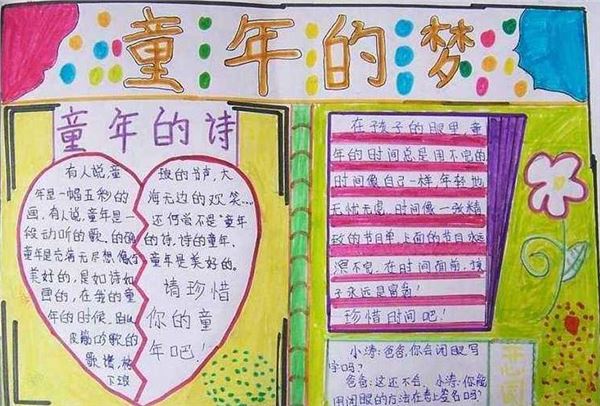 童年的梦
童年的诗
有人说,童
年是一幅五彩的
画,有人说,童年是一
段动听的歌,的确
童年是充满无尽想像
美好的,是如诗如
画的,在我的童
年的时候,跳
皮筋听歌的
歌谱,
下班
班的书声,大
海无边的欢笑…
还何尝不是童年
的诗,诗的童年,
童年是美好的。
请珍惜
你的童
年吧!
在孩子的眼里童
年的时间总是用不完的
时间像自己一样年轻地
无忧无虑,时间像一张精
致的节目单,上面的节目永远
演不完,在时间面前,孩
子永远是富翁!
珍惜时间吧!
小涛:爸爸,你会闭眼写
字吗?
爸爸:这还不会 小涛:你能
用闭眼的方法在卷上签名吗?
开心园